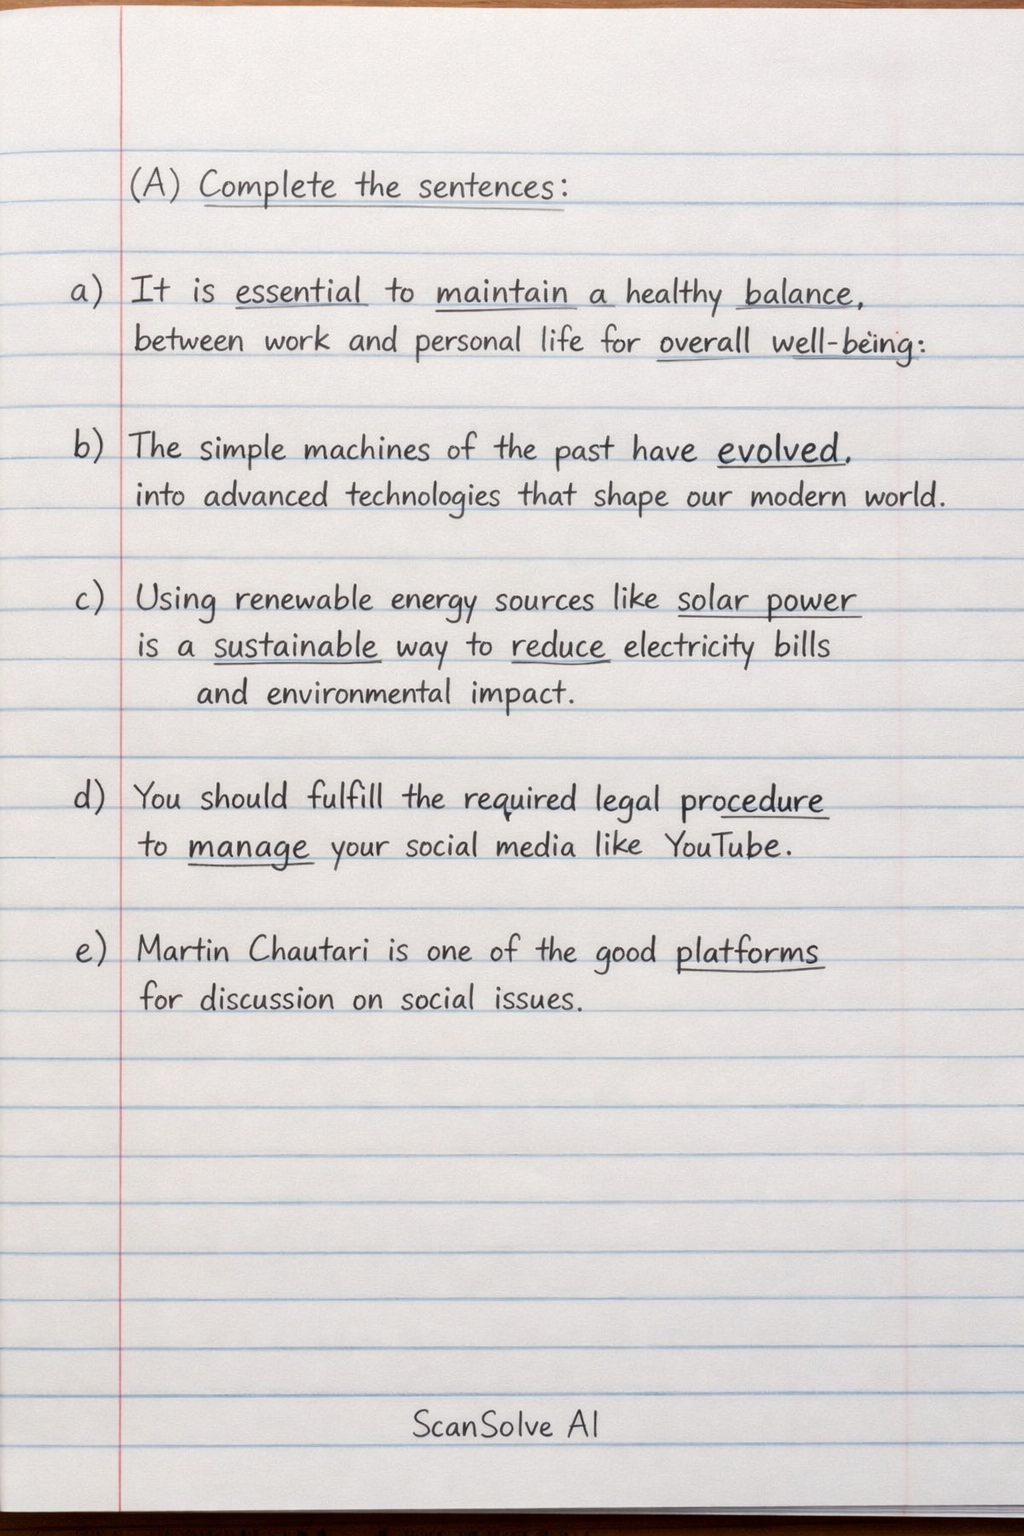 (A) Complete the sentences:
a) It is essential to maintain a healthy balance,
between work and personal life for overall well-being:
b) The simple machines of the past have evolved.
into advanced technologies that shape our modern world.
c) Using renewable energy sources like solar power
is a sustainable way to reduce electricity bills
and environmental impact.
d) You should fulfill the required legal procedure
to manage your social media like YouTube.
e) Martin Chautari is one of the good platforms
for discussion on social issues.
ScanSolve AI